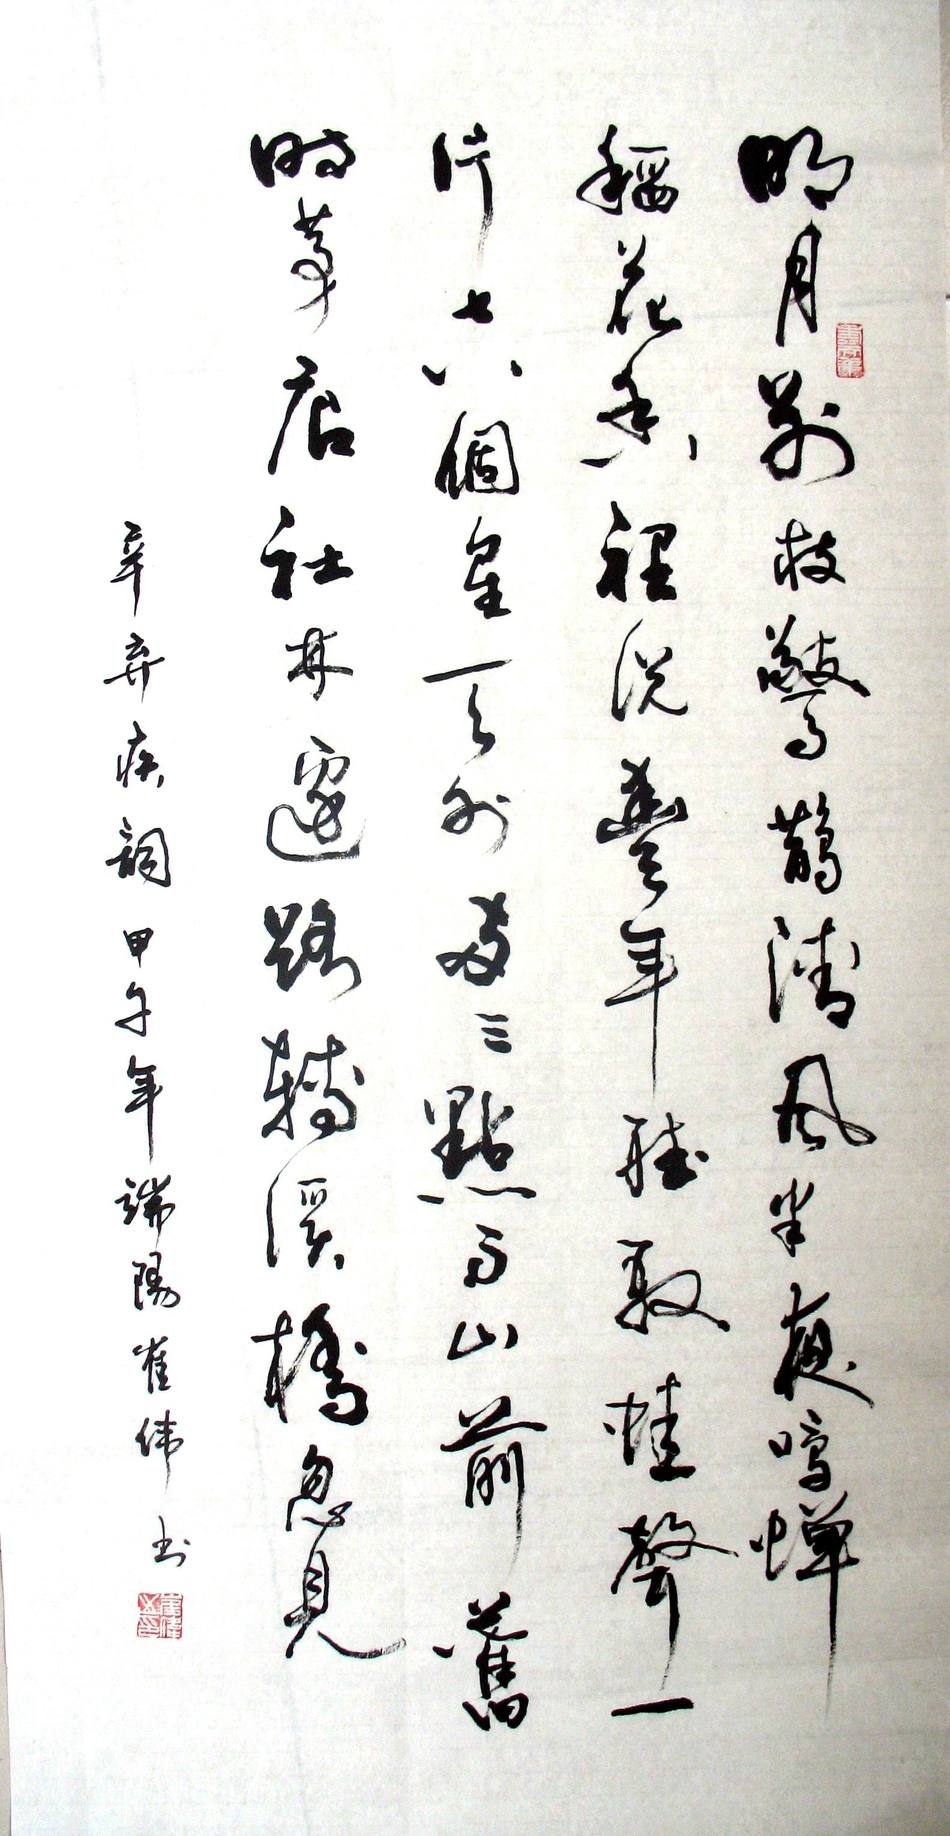 明月別枝驚鵲清風半夜鳴蟬
稻花香裡說豐年聽取蛙聲一
片七八個星天外兩三點雨山前舊
時茅店社林邊路轉溪橋忽見
辛弃疾詞甲午年端陽崔偉书